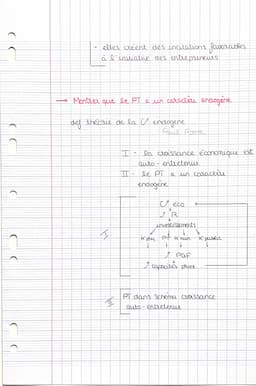 • elles créent des incitations favorables
à l'initiative des entrepreneurs
→ Montrer que le PT a un caractère endogène
def théorie de la C° endogène
I - la croissance économique est
auto-entretenue
II - le PT a un caractère
endogène
I
C° éco
↗ R
investissements
K phy PT K hum K public
↗ PGF
↗ capacités
II
PT dans schéma croissance
auto-entretenue